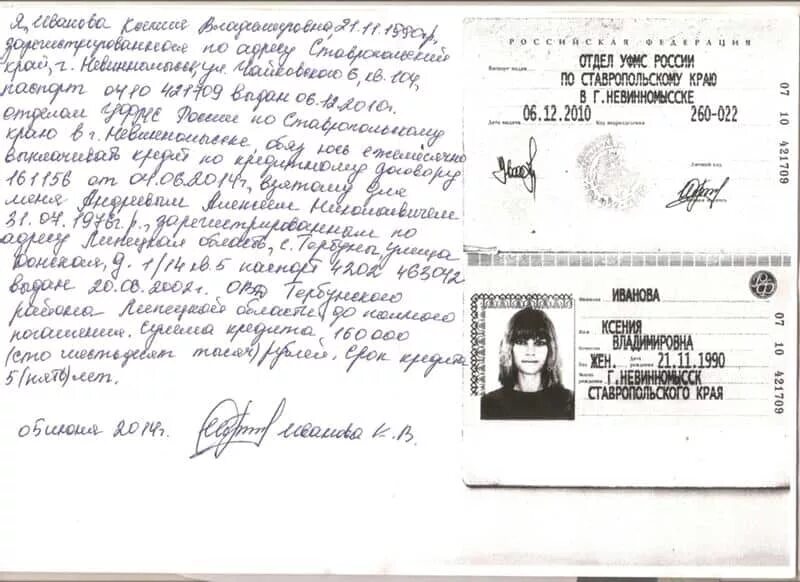 Я, Иванова Ксения Владимировна, 21.11.1990г.р,
зарегистрированная по адресу Ставропольский
край, г. Невинномысск, ул. Чайковского 6, кв. 104,
паспорт 0710 421709 выдан 06.12.2010г.
отделом УФМС России по Ставропольскому
краю в г. Невинномысске, обязуюсь ежемесячно
выплачивать кредит по кредитному договору
161156 от 01.06.2014г, взятому для
меня Андреевым Алексеем Николаевичем
31.04.1978г.р., зарегистрированным по
адресу Липецкая область, с. Тербуны улица
Донская, д. 1/14 кв. 5 паспорт 4202 463042
выдан 20.06.2002г. ОВД Тербунского
района Липецкой области до полного
погашения. Сумма кредита 160 000
(сто шестьдесят тысяч) рублей. Срок кредита
5 (пять) лет.
05 июня 2014г. Иванова К. В.
РОССИЙСКАЯ ФЕДЕРАЦИЯ
Паспорт выдан
ОТДЕЛ УФМС РОССИИ
ПО СТАВРОПОЛЬСКОМУ КРАЮ
В Г.НЕВИННОМЫССКЕ
06.12.2010 260-022
Дата выдачи Код подразделения
Личный код
07 10 421709
ИВАНОВА
Фамилия
КСЕНИЯ
Имя
ВЛАДИМИРОВНА
Отчество
ЖЕН. 21.11.1990
Пол Дата рождения
Место рождения
Г.НЕВИННОМЫССК
СТАВРОПОЛЬСКОГО КРАЯ
07 10 421709